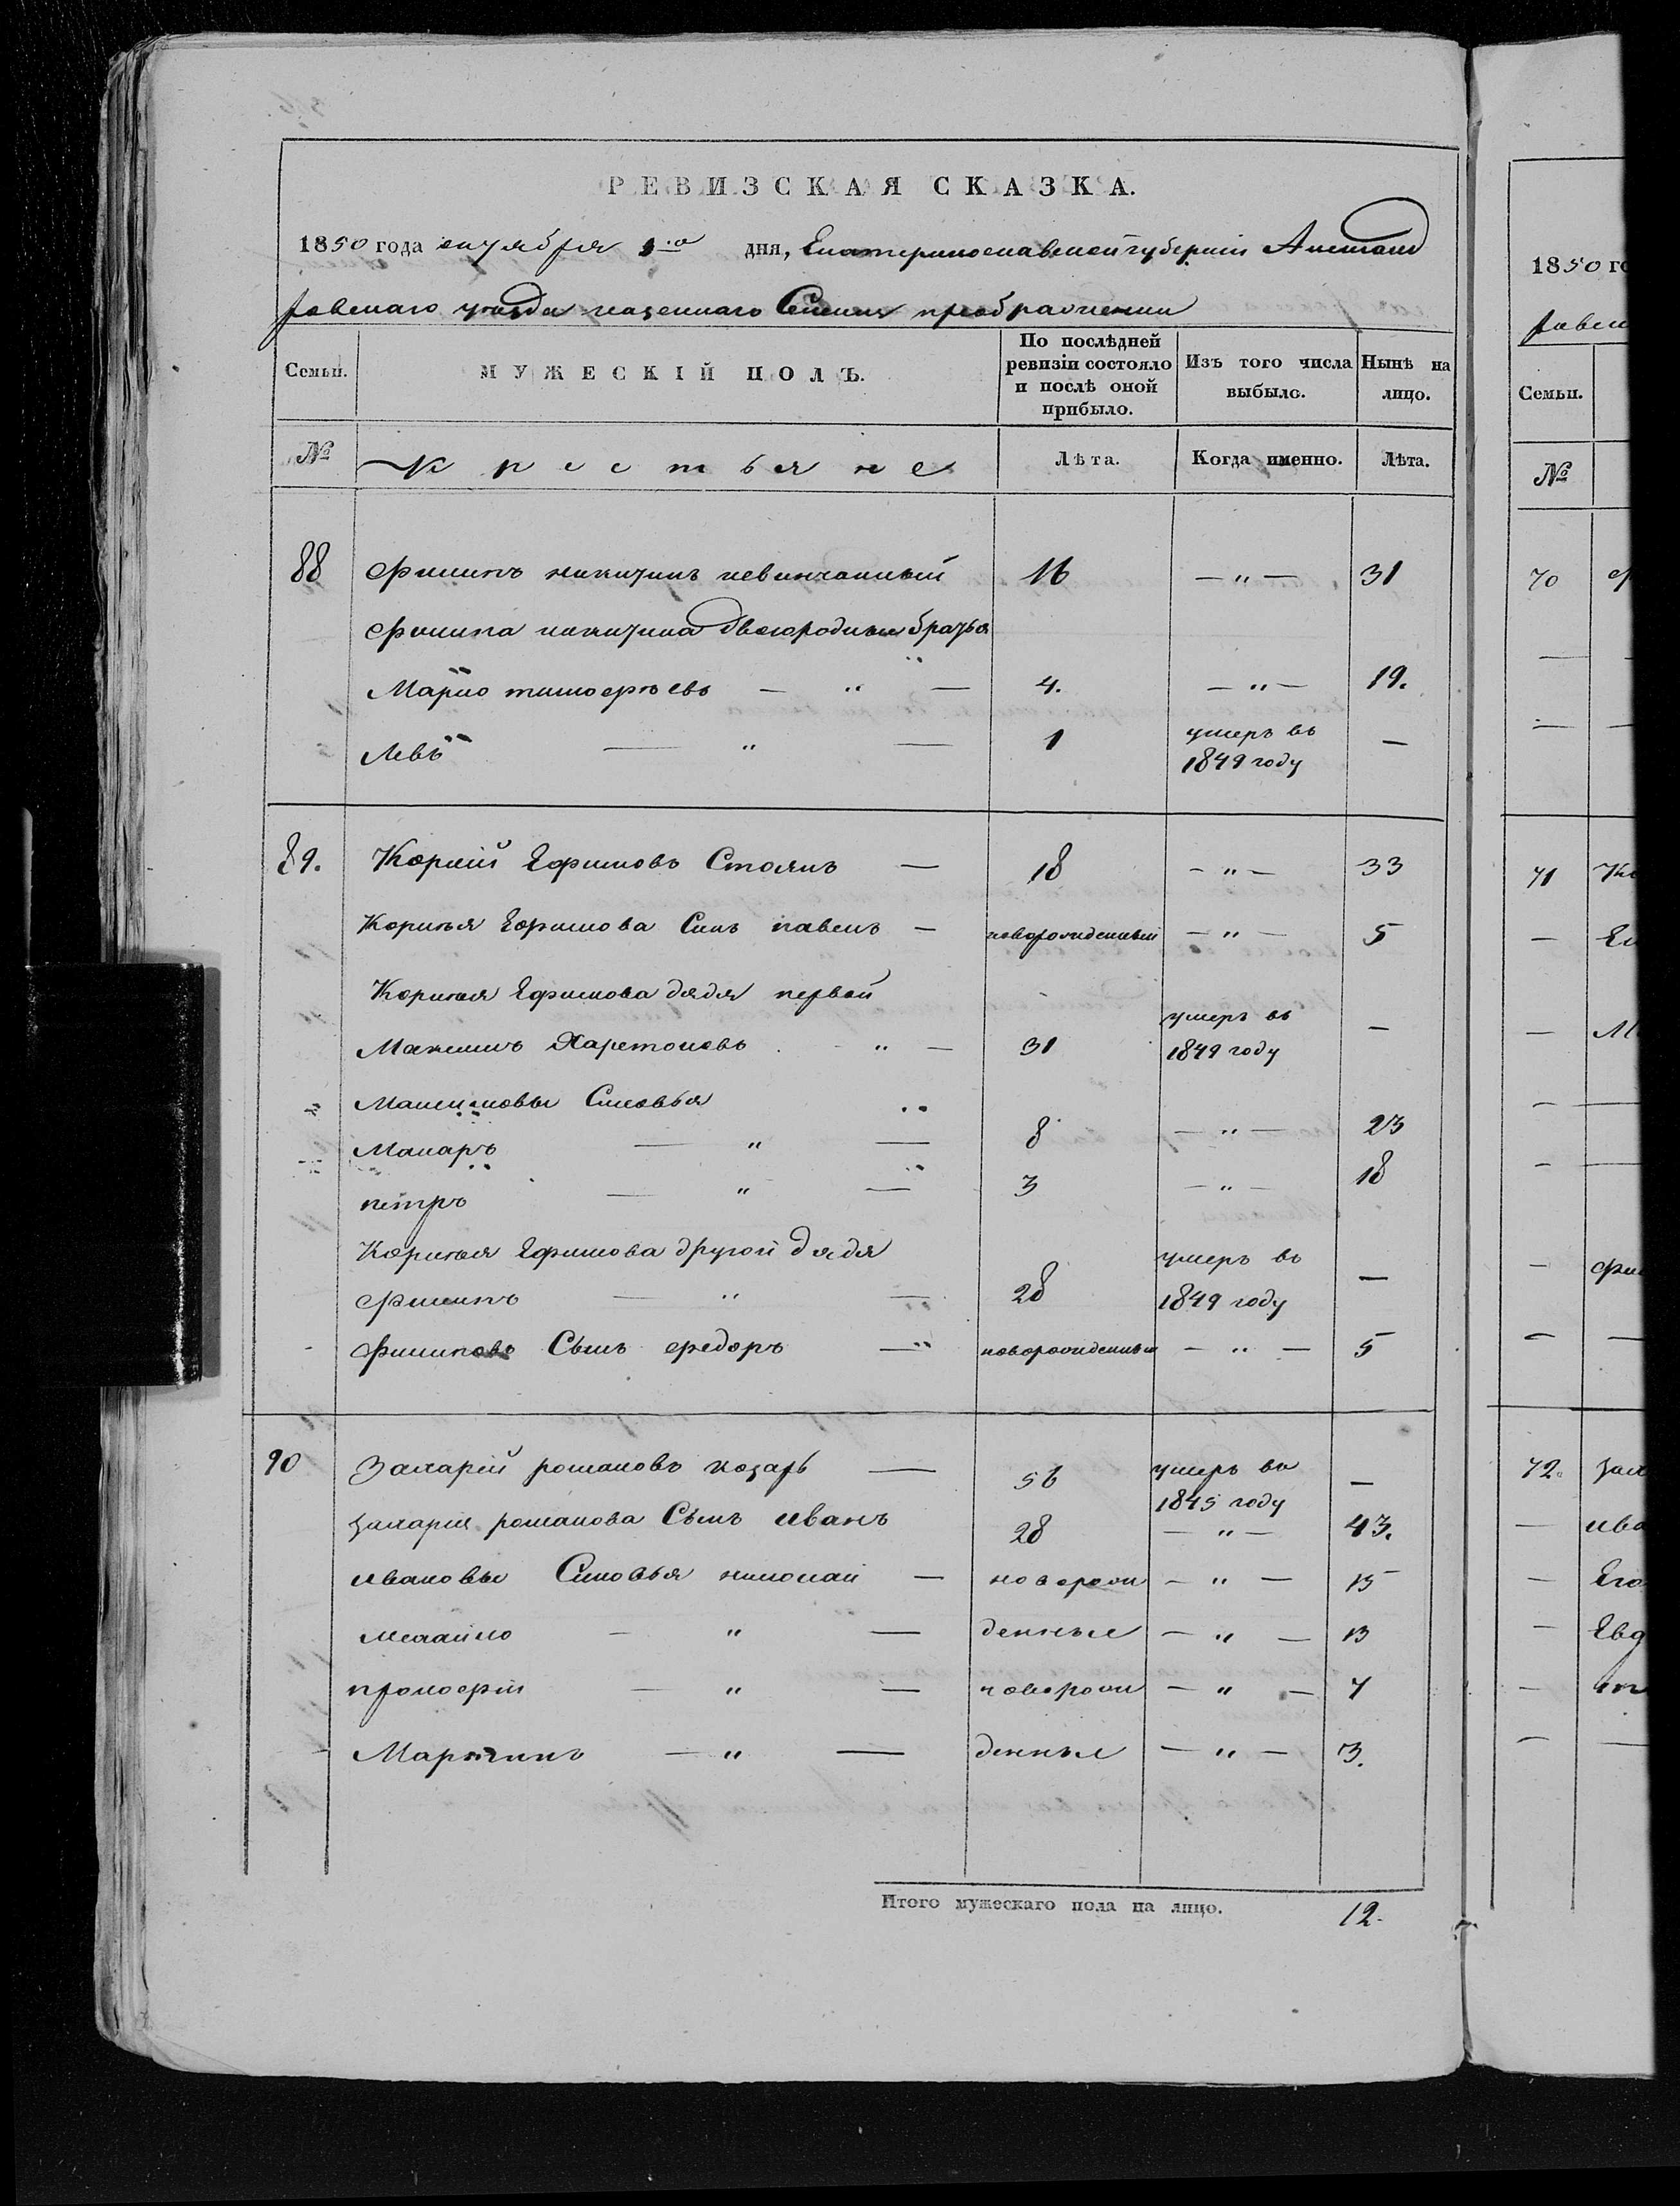 РЕВИЗСКАЯ СКАЗКА.
1850 года октября 1го дня, Екатеринославской губерніи Александ
ровскаго уезда казеннаго Селенія преображенки
Семьи. МУЖЕСКІЙ ПОЛЪ. По послѣдней ревизіи состояло и послѣ оной прибыло. Изъ того числа выбыло. Нынѣ на лицо.
№ Крестьяне Лѣта. Когда именно. Лѣта.
88 Филипъ никитинъ 16 — " — 31
Филипа никитина двоюродные братья
Марко тимофѣевъ — " — 4. — " — 19.
Левъ — " — 1 умеръ въ 1849 году —
89. Корнѣй Ефимовъ Стоянъ — 18 — " — 33
Корнѣя Ефимова Сынъ павелъ — новорожденный — " — 5
Корнѣя Ефимова дядя первой
Максимъ Харетоновъ " — 31 умеръ въ 1849 году —
Максимовы Сыновья
Макаръ — " — 8 — " — 23
петръ — " — 3 — " — 18
Корнѣя Ефимова другой дядя
Филипъ — " — 28 умеръ въ 1849 году —
Филиповъ Сынъ федоръ — " новорожденный — " — 5
90 Захарій романовъ козарь — 56 умеръ въ 1845 году —
захарія романова Сынъ иванъ 28 — " — 43.
ивановы Сыновья николай — новорож — " — 15
михайло — " — денные — " — 13
прокофій — " — новорож — " — 7
Мартинъ — " — денные — " — 3.
Итого мужескаго пола на лицо. 12.
1850 го
ровск
Семьи.
№
70 ф
71 Ко
72. зах
ива
Евд